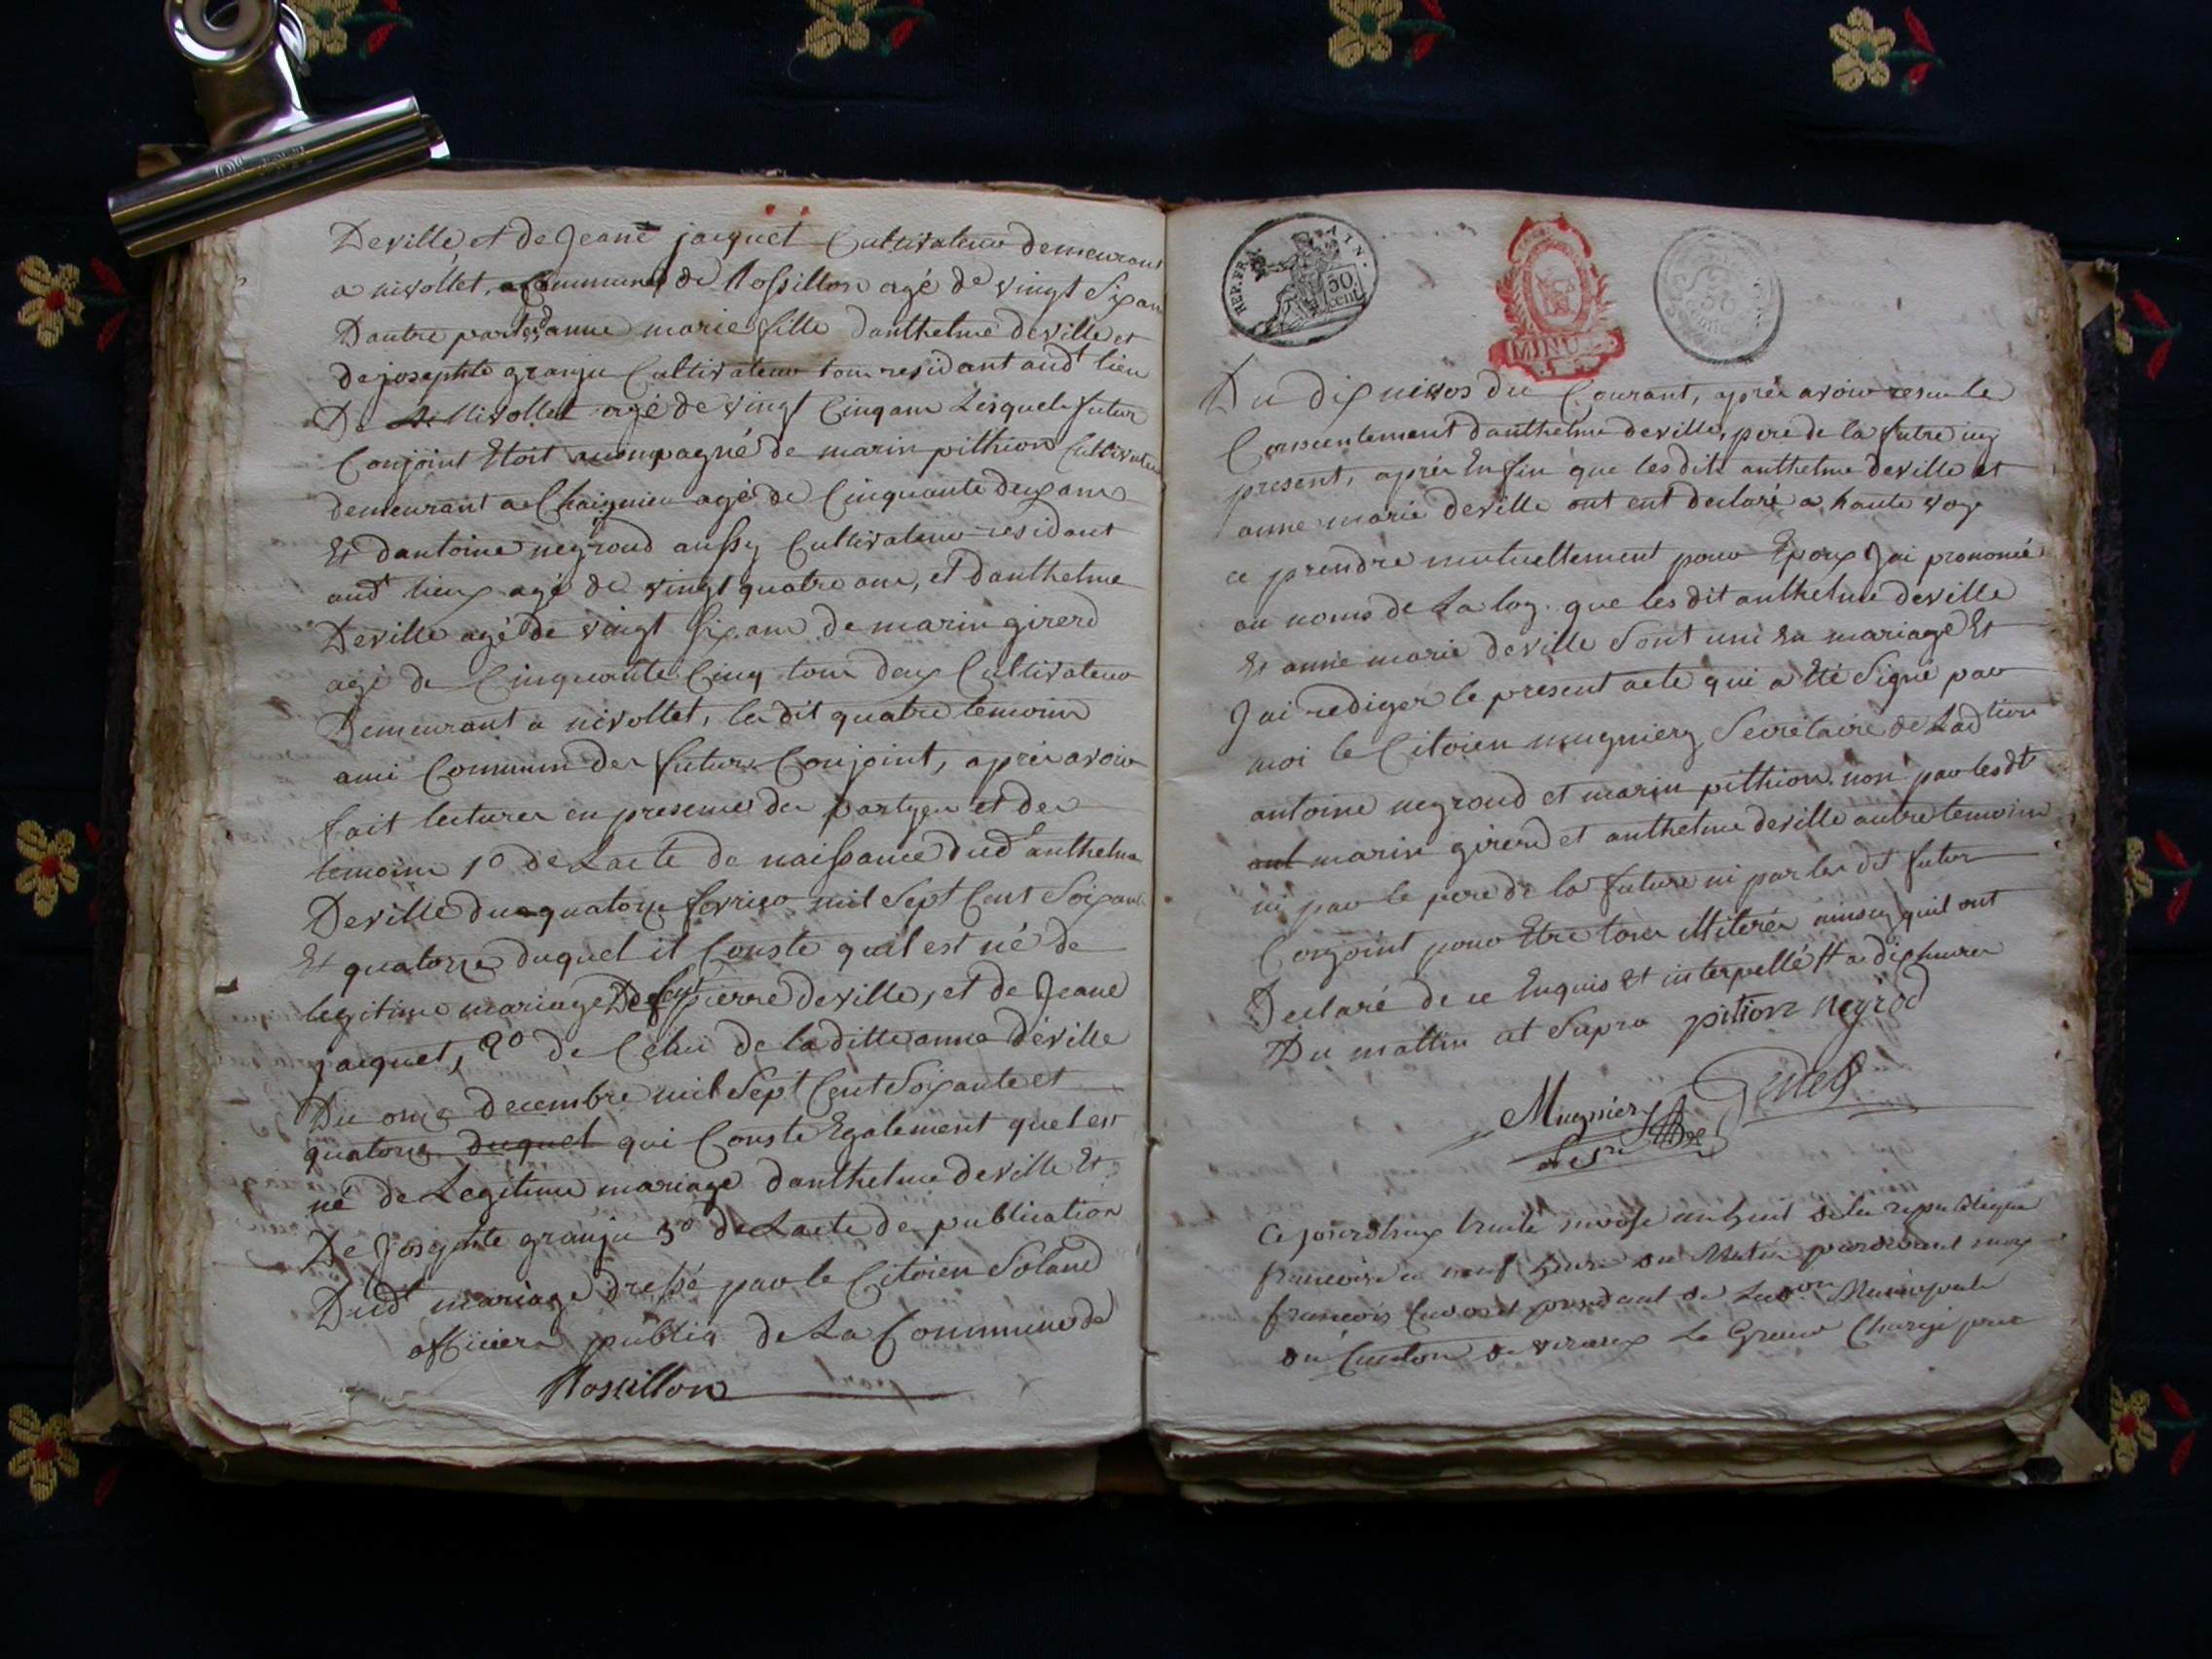 Deville et de Jeane jacquet Cultivateur demeurant
a nivollet, Commune de Rossillon agé de vingt Six ans
Dautre part et danne marie fille danthelme deville et
de josephte granju Cultivateur tous residant aud.t lieu
De Nivollet agé de vingt Cinq ans Lesquels futur
Conjoint Etoit accompagné de marin pithion Cultivateur
demeurant a Chaignieu agé de Cinquante deux ans
Et dantoine negroud aussy Cultivateur residant
aud.t lieux agé de vingt quatre ans, et danthelme
Deville agé de vingt Six ans de marin girerd
agé de Cinquante Cinq tous deux Cultivateur
Demeurant a nivollet, les dit quatre temoins
ami Commun des futurs Conjoint, après avoir
fait lectures en presence des partyes et des
temoins 1o de Lacte de naissance dud.t anthelme
Deville du quatorze fevrier mil Sept Cent Soixante
Et quatorze duquel il Conste quil est né de
legitime mariage De feu pierre deville, et de Jeane
jacquet, 2o de Celui de laditte anne déville
Du onze decembre mil Sept Cent Soixante et
quatorze duquel qui Conste Egalement quel est
né de Legitime mariage danthelme deville Et
De Josephte granju 3o de Lacte de publication
Dud.t mariage dressé par le Citoien Soland
officiers publiq de La Commune de
Rossillon
REP. FRA. AIN.
50 cent.
MINU
Du dix nivos du Courant, après avoir resu le
Consentement danthelme deville, pere de la futre icy
present, après Enfin que les dits anthelme deville et
anne marie deville ont ent declaré a haute voye
ce prendre mutuellement pour Epoux Jai prononcé
au noms de La loy. que les dit anthelme deville
Et anne marie deville Sont uni En mariage Et
Jai rediger le present acte qui a Eté Signé par
moi le Citoien mugniery Secretaire de Lad.tion
antoine negroud et marin pithion. non par lesd.ts
ant marin girerd et anthelme deville autre temoins
ni par le pere de la future ni par les dit futur
Conjoint pour Etre tous illiterés ainsy quil ont
Declaré de ce Enquis Et interpellé a dix heures
Du mattin ut Supra pition negrod
Mugniery
Ce jourdhuy trente nivose an huit de la republique
francoise a neuf heure du Matin pardevant moy
francois president de Municipale
du Canton de virieux Le Grand Chargé par